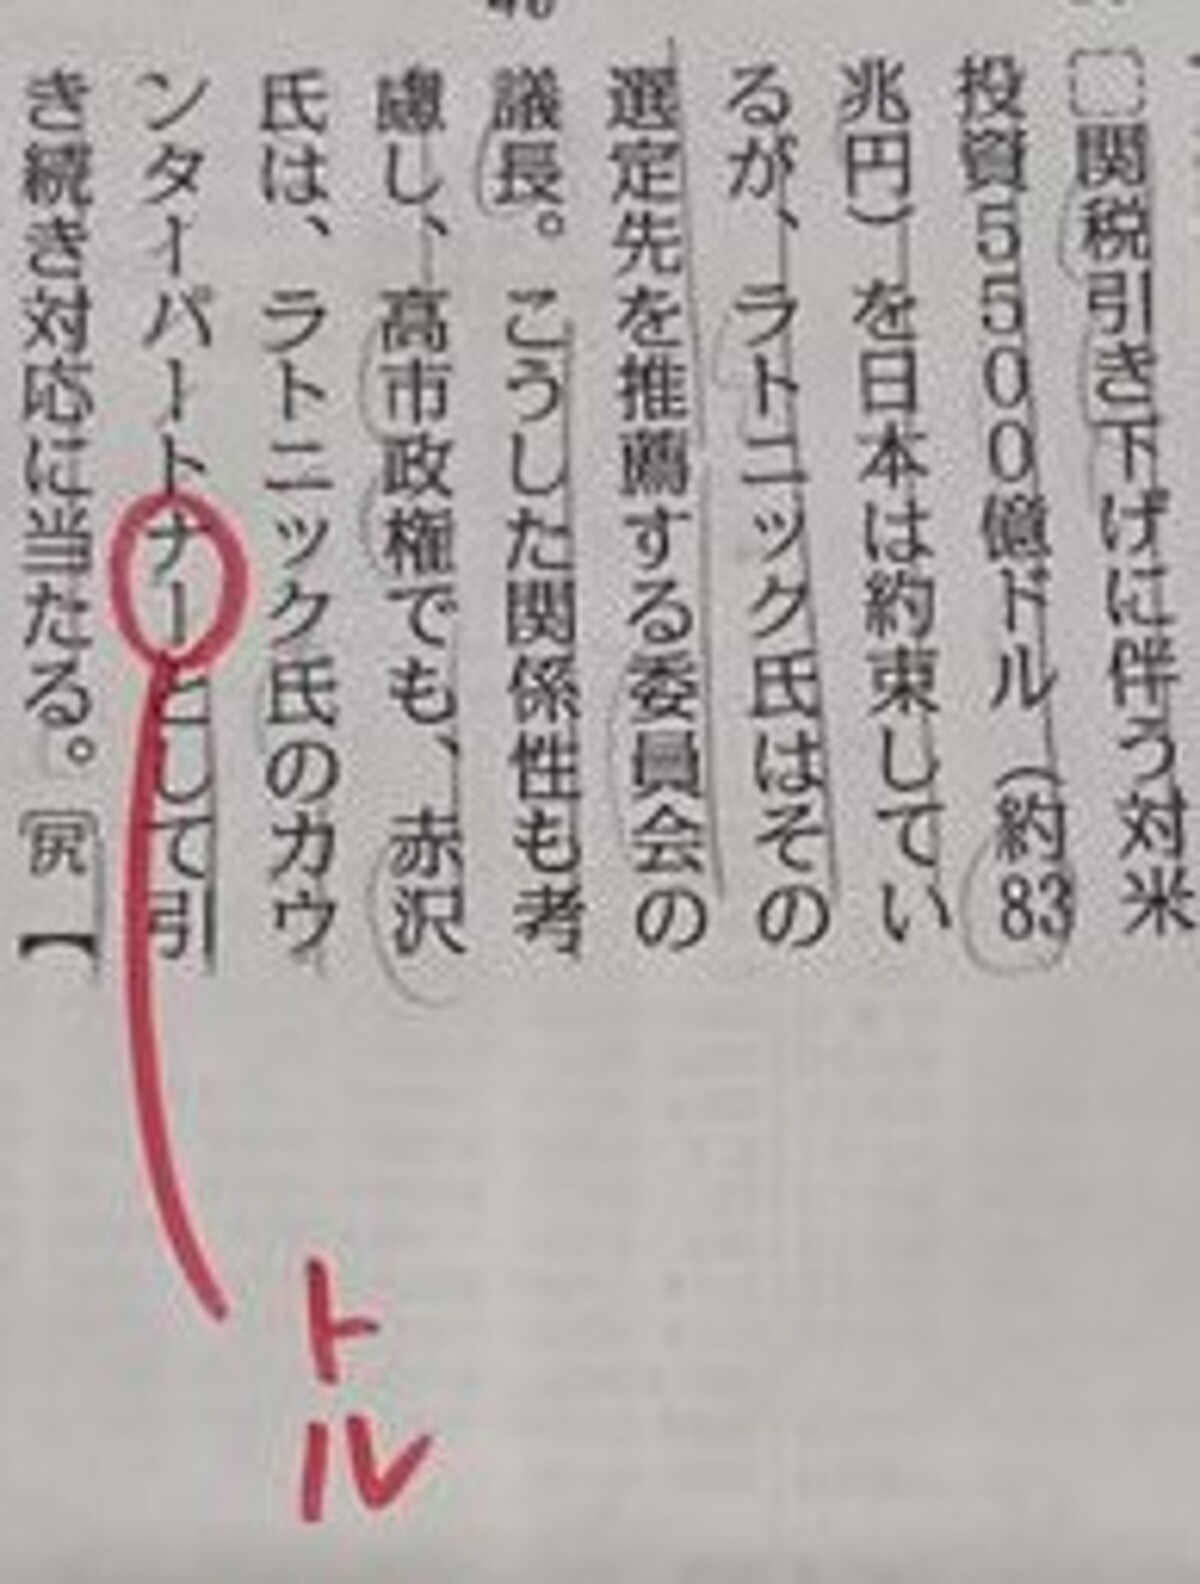 □関税引き下げに伴う対米
投資5500億ドル（約83
兆円）を日本は約束してい
るが、ラトニック氏はその
選定先を推薦する委員会の
議長。こうした関係性も考
慮し、高市政権でも、赤沢
氏は、ラトニック氏のカウ
ンターパートナーとして引
き続き対応に当たる。〔尻】
トル